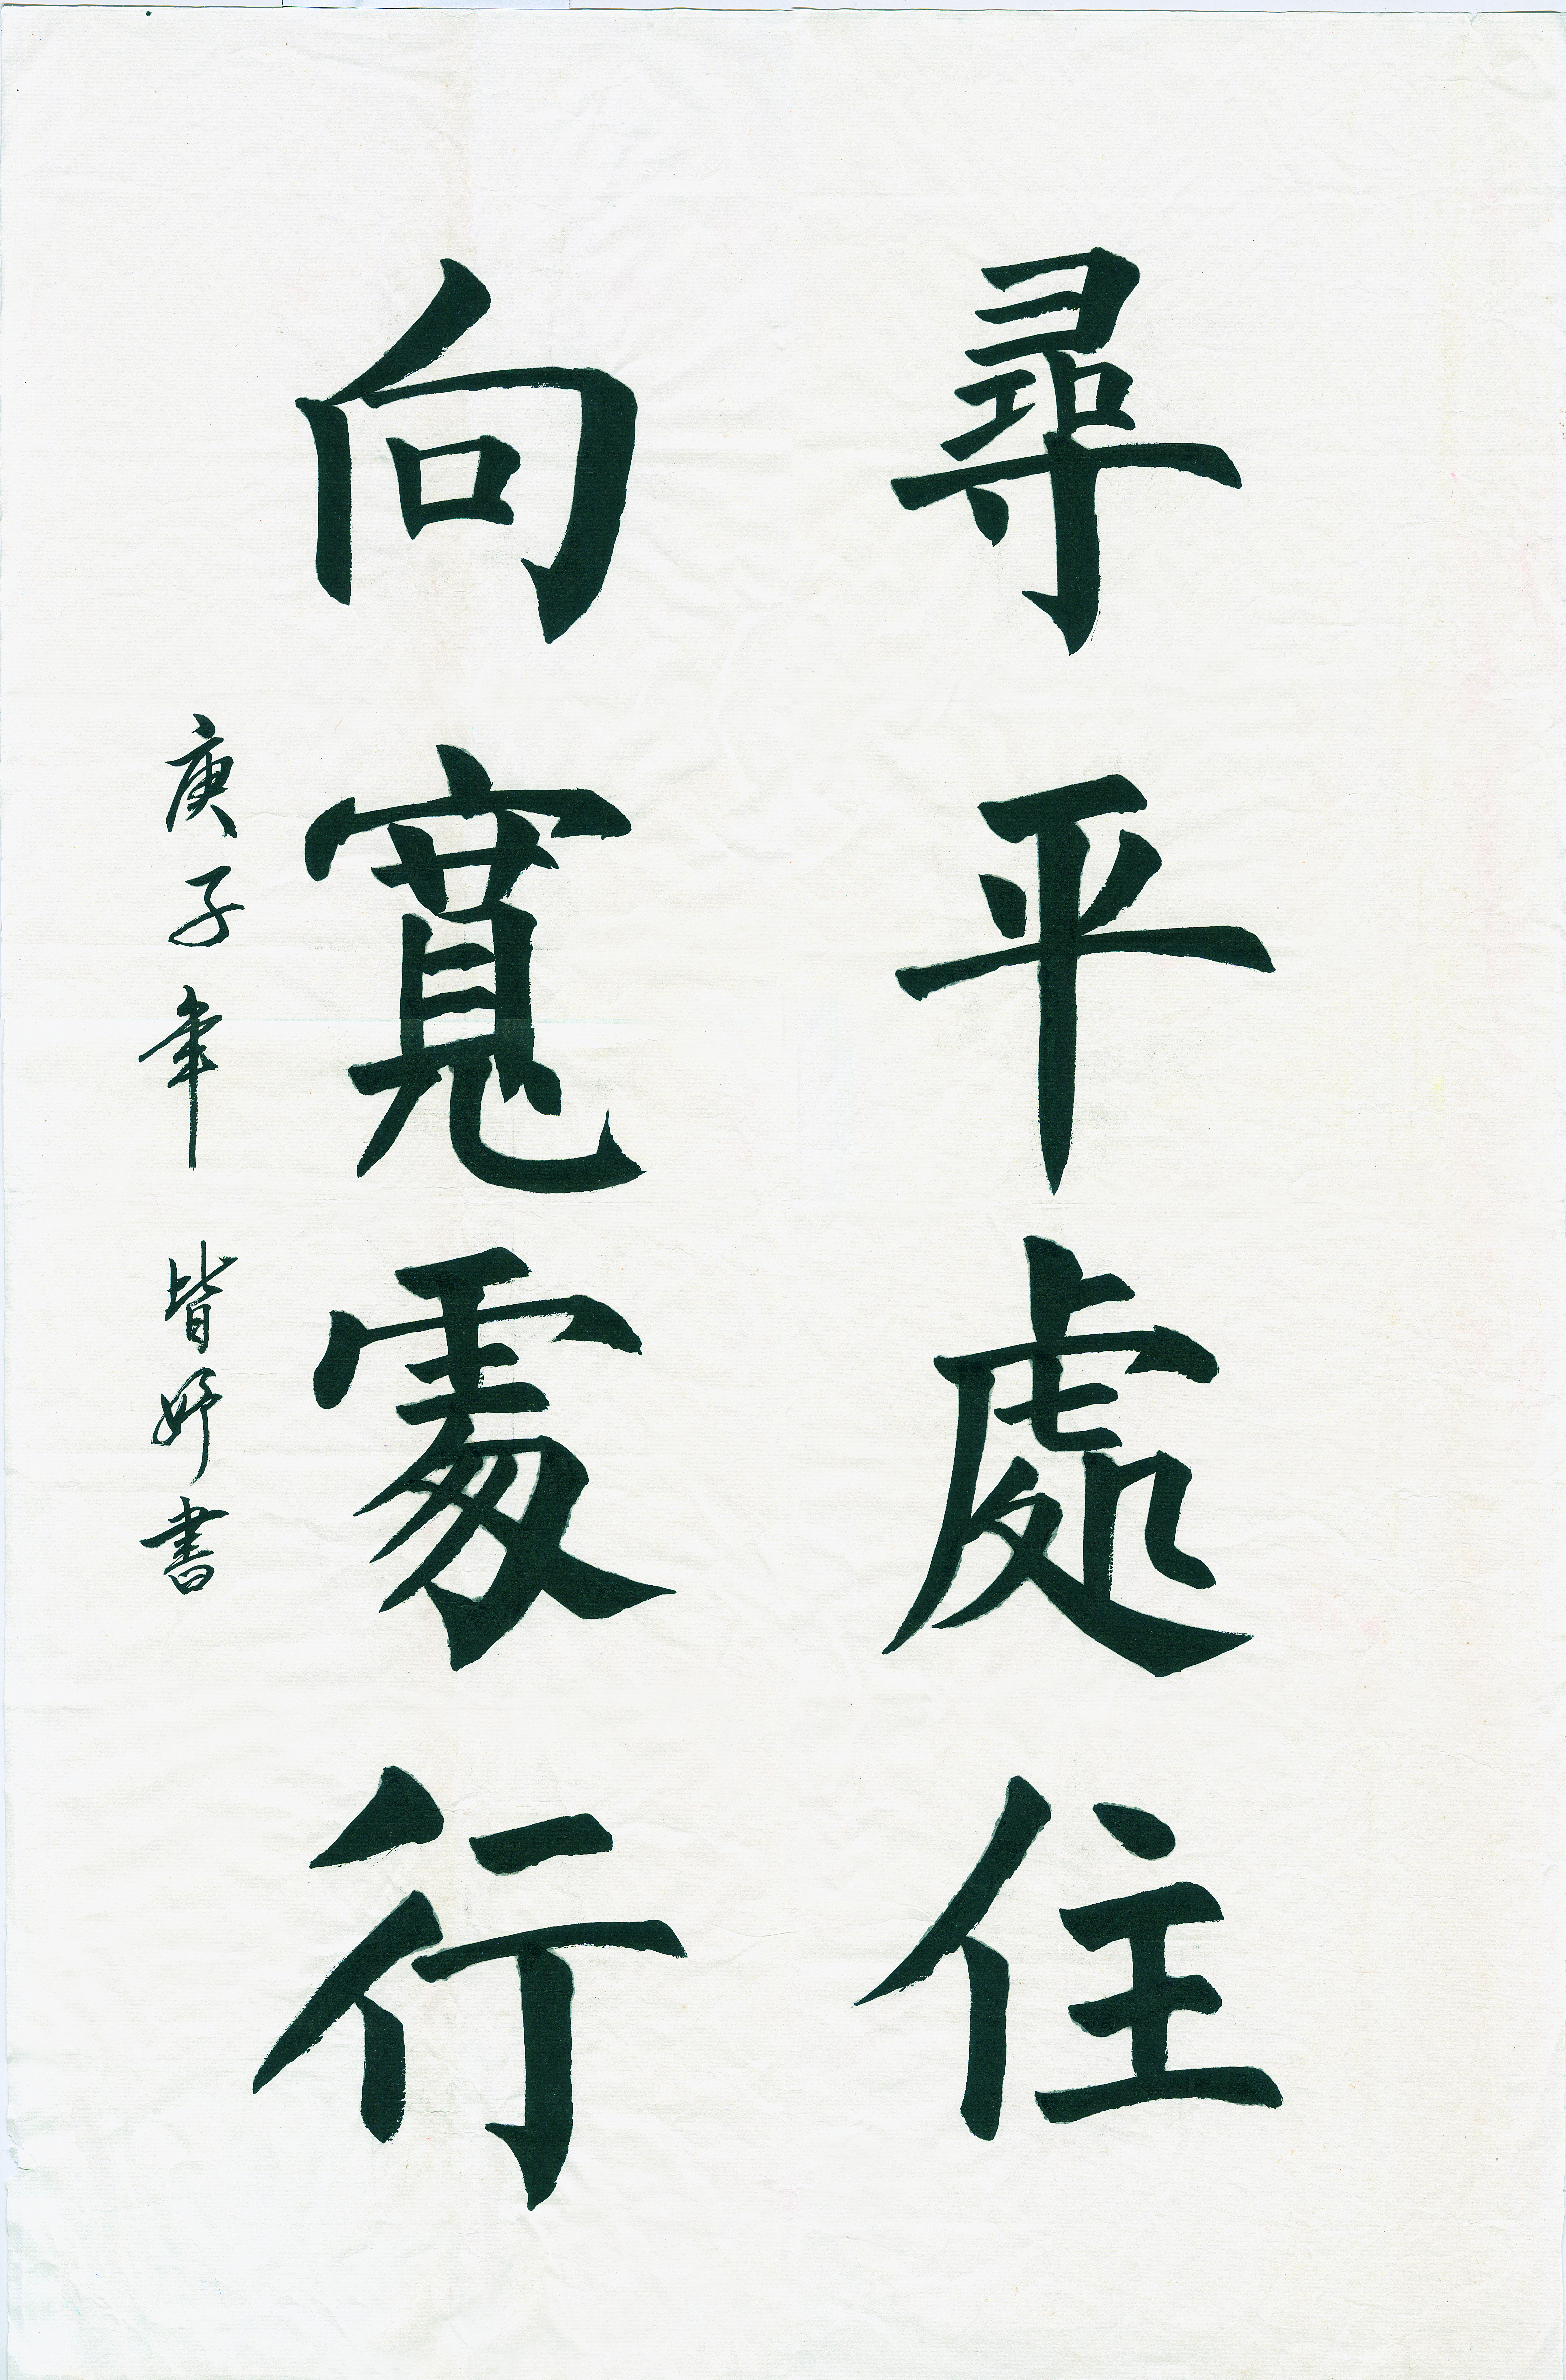 尋平處住
向寬處行
庚子年 皆妤書